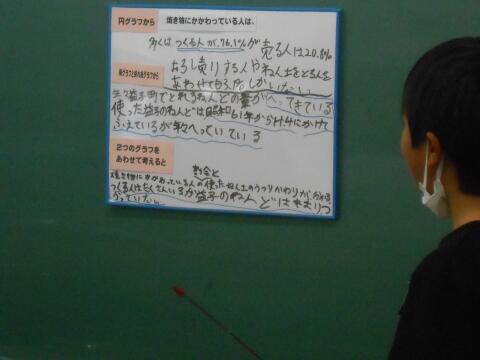 円グラフから 焼き物にかかわっている人は、
多くはつくる人が76.1%が売る人は20.8%
おろし売りする人やねん土をとる人を
あわせても3.1%しかいない
年々益子町でとれるねん土の量がへってきている
使った益子のねん土は昭和61年からH4にかけて
ふえているが年々へっていている
2つのグラフをあわせて考えると
割合と
焼き物にかかわっている人の使ったねん土のうつりかわりが分かる
つくる人はたくさんいるが益子のねん土は